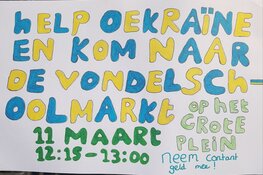 HELP OEKRAÏNE
EN KOM NAAR
DE VONDELSCH
OOLMARKT OP HET
GROTE
PLEIN
11 MAART
12:15-13:00
Neem contant
geld mee!